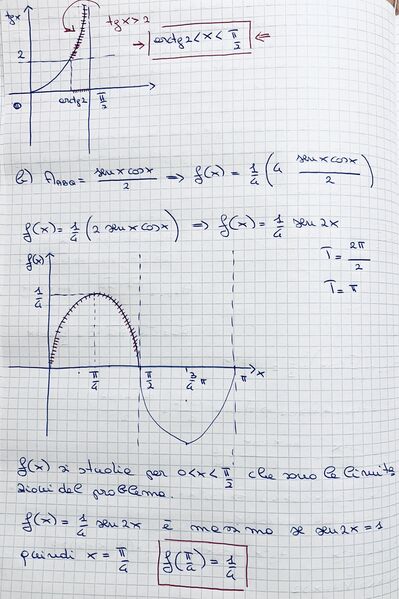 tgx
tgx > 2
→ arctg2 < x < π/2 ⇐
2
0 arctg2 π/2
b) A_ABQ = senx cosx / 2 ⟹ f(x) = 1/4 (4 senx cosx / 2)
f(x) = 1/4 (2 senx cosx) ⟹ f(x) = 1/4 sen 2x
T = 2π/2
T = π
f(x)
1/4
π/4 π/2 3/4 π π x
f(x) si studia per 0<x<π/2 che sono le limita
zioni del problema.
f(x) = 1/4 sen2x è massimo se sen2x = 1
quindi x = π/4 f(π/4) = 1/4